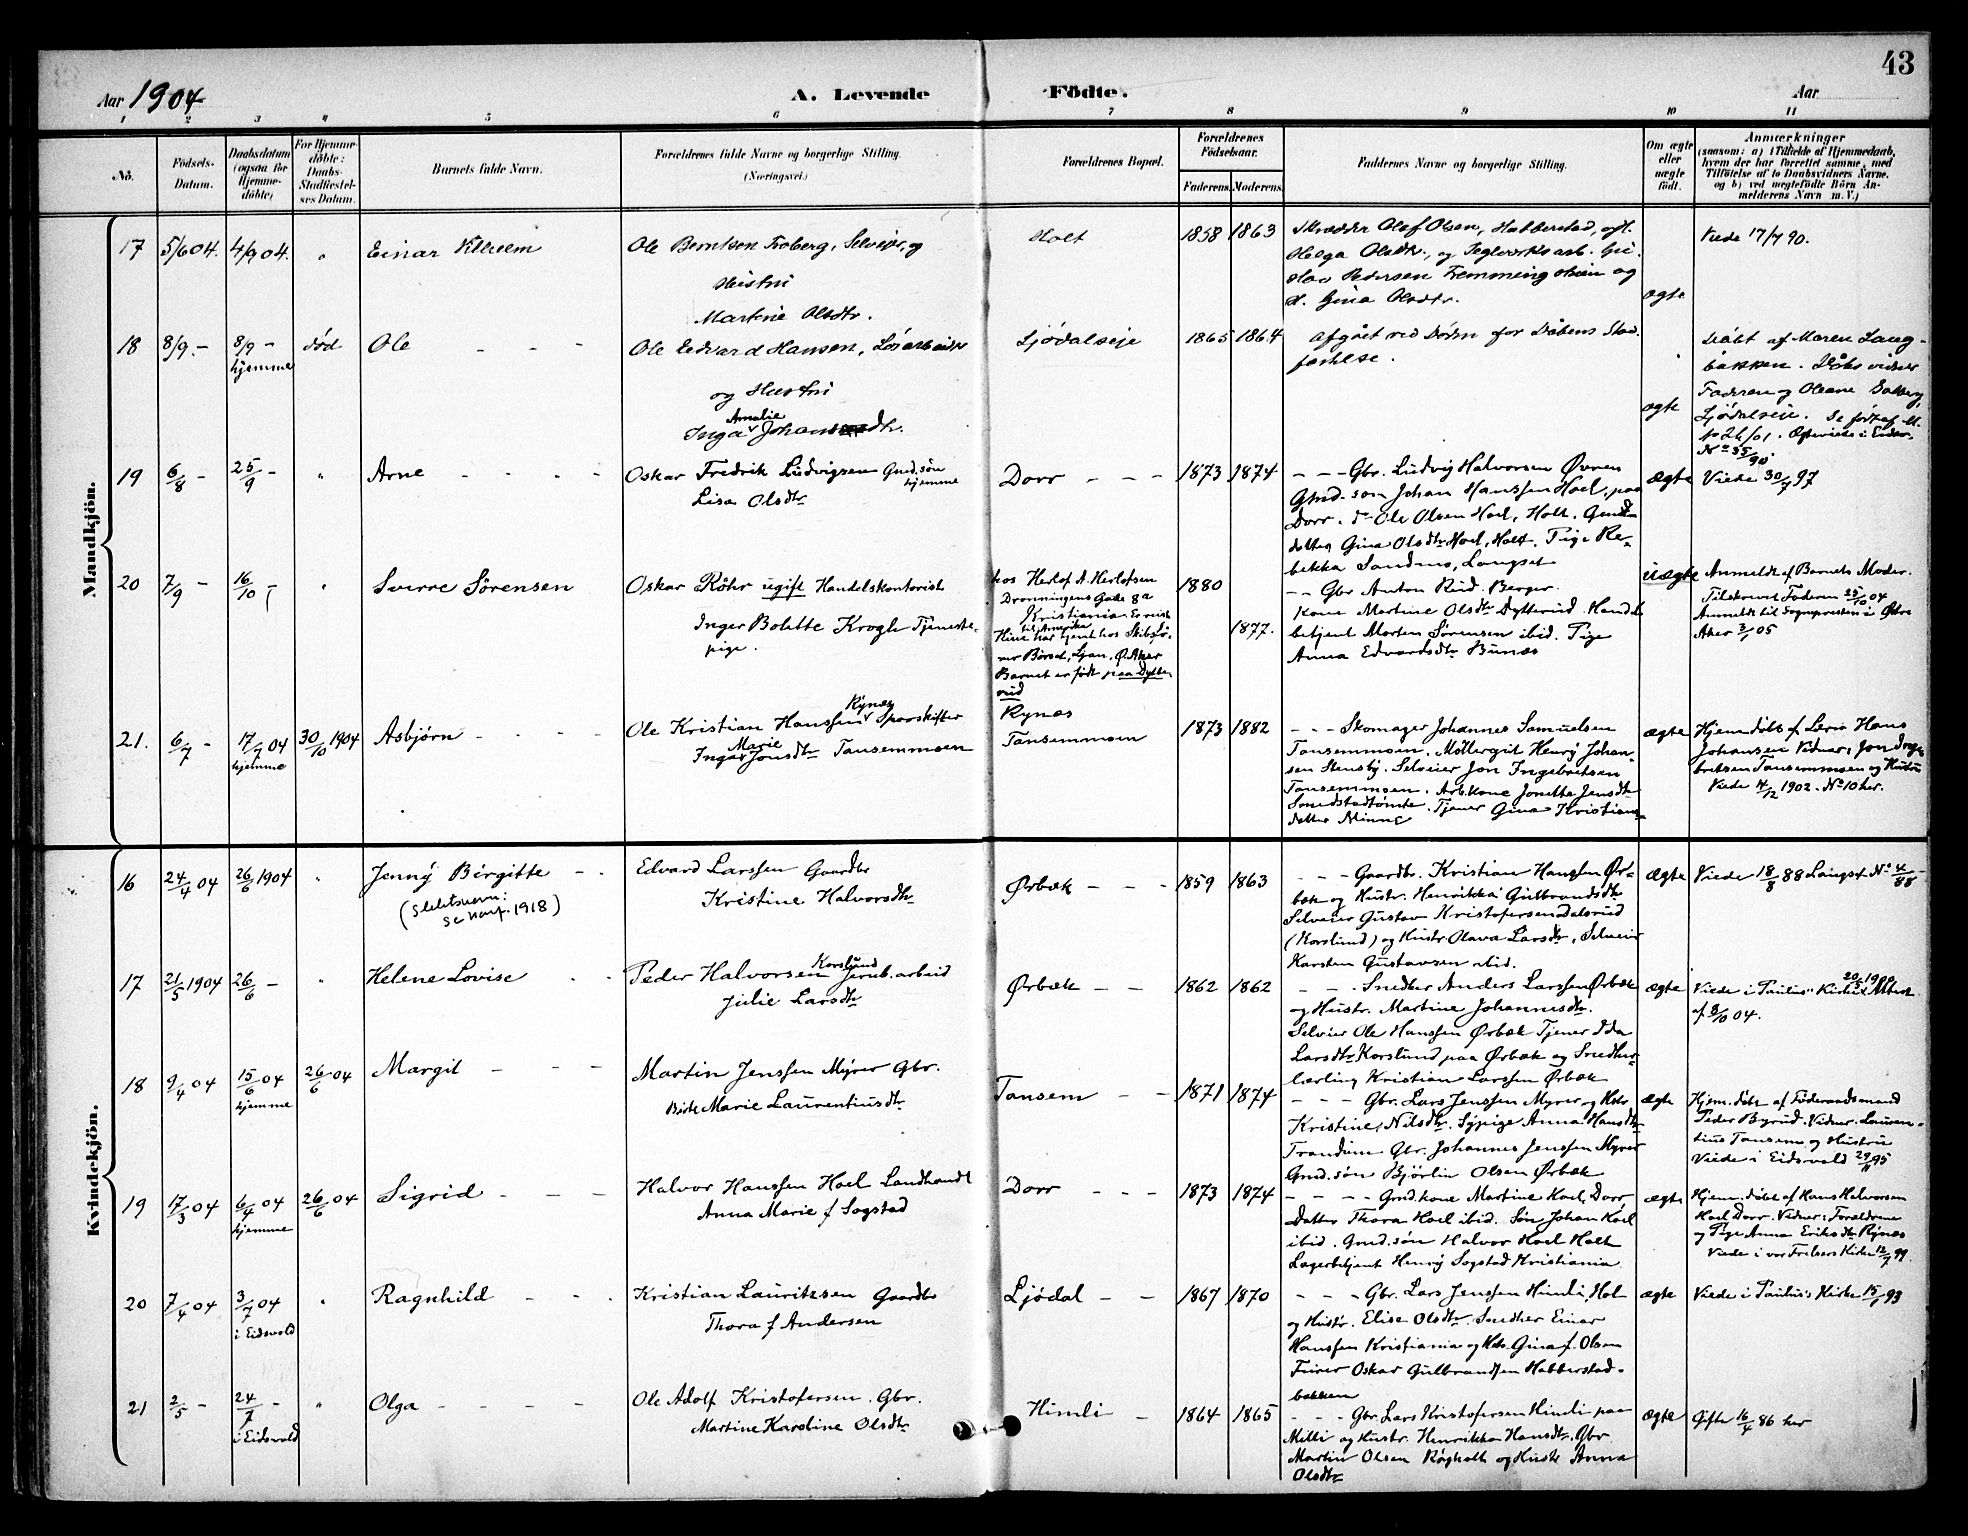 43
Aar 1904
A. Levende Fødte.
Aar
1 2 3 4 5 6 7 8 9 10 11
No.
Fødsels-
Datum.
Daabsdatum
(ogsaa for
Hjemme-
døbte)
For Hjemme-
døbte:
Daabs-
Stadfæstel-
ses Datum.
Barnets fulde Navn.
Forældrenes fulde Navne og borgerlige Stilling.
(Næringsvei.)
Forældrenes Bopæl.
Forældrenes
Fødselsaar.
Faderens. Moderens.
Faddernes Navne og borgerlige Stilling.
Om ægte
eller
uægte
født.
Anmærkninger
(saasom: a) i Tilfælde af Hjemmedaab,
hvem der har forrettet samme, med
Tilføielse af to Daabsvidners Navne.
og b) ved uægtefødte Børn An-
melderens Navn m. V.)
Mandkjøn.
17 5/6 04. 4/9 04. " Einar Vilhelm
Ole Berntsen Froberg, Selveier, og
Hustru
Martine Olsdtr.
Holt
1858 1863
Skrædder Olof Olsen, Habberstad,
Helga Olsdtr., og Teglverksarb.
Pedersen
og
Gina Olsdtr.
ægte
Viede 17/7 90.
18 8/9.- 8/9 - død Ole - - -
hjemme
Ole Edvard Hansen, Løsarbeider
og Hustru
Amalie
Inga Johansdtr.
Ljødalseje
1865 1864
Afgået ved Døden før Dåbens Stad-
fæstelse.
ægte
Døbt af Maren Laug-
bakken. Dåbsvidner
Faderen og Oleane Solberg
Ljødalseje.
Nº 35/90.
19 6/8 - 25/9 - " Arne - - - -
Oskar Fredrik Ludvigsen Gmd.søn
hjemme
Lisa Olsdtr
Dorr - - -
1873 1874
- - - Gbr. Ludvig Halvorsen Øvren
Gmd.søn Johan Hanssen Hoel, paa
Dorr. dº Ole Olsen Hoel, Holt. Gmd-
datter Gina Olsdtr Hoel, Holt. Pige Re-
bekka Sandnes, Langset
ægte Viede 30/7 97
20 7/9 - 16/10 - " Sverre Sørensen
Oskar Röhr ugift Handelskontorist
Inger Bolette Krogh Tjeneste-
pige.
hos Herlof A. Herlofsen
Dronningens Gade 8a
Kristiania Er reist
til Amerika
Hun har tjent hos Skibsfø-
rer Børsed, Ljan, Ø. Aker
Barnet er født paa Dytte-
rud
1880
1877.
- - Gbr Anton Rud Berger
Kone Martine Olsdtr Dytterud Handels-
betjent Morten Sørensen ibid. Pige
Anna Edvardsdtr Bunæs
uægte
Anmeldt af Barnets Moder.
Tilskrevet Faderen 25/10 04
Anmeldt til Sognepresten i Østre
Aker 3/1 05
21. 6/7 - 17/7 04 30/10 1904 Asbjørn - - - -
hjemme
Rynæs
Ole Kristian Hanssen Sporskifter
Marie
Inga Jonsdtr Tansemmoen
Rynæs
Tansemmoen
1873 1882
- - - Skomager Johannes Samuelsen
Tansemmoen. Møllergut Henry Johan-
sen Stensby. Selveier Jon Ingebretsen
Tansemmoen. Arb.kone Jonetta Jensdtr
Smedstadtomte. Tjener Gina Kristians-
datter Minne
ægte
Hjemdøbt af Lærer Hans
Johansen Vidner: Jon Inge-
bretsen Tansemmoen og Hustru
Viede 4/12 1902. Nº 10 her.
Kvindekjøn.
16 24/4 04 26/6 1904 " Jenny Birgitte - -
(Slektsnavn:
Se Konf. 1918)
Edvard Larssen Gaardbr
Kristine Halvorsdtr
Ørbæk - - -
1859 1863
- - - Gaardbr. Kristian Hanssen Ør-
bæk og Hustr. Henrikka Gulbrandsdtr
Selveier Gustav Kristofersen Dalsrud
(Korslund) og Hustr Olava Larsdtr, Selveier
Karsten Gustavsen ibid.
ægte Viede 18/8 88 Langset Nº 4/88
17 21/5 1904 26/6 - " Helene Lovise - -
Korslund
Peder Halvorsen Jernb.arbeid
Julie Larsdtr
Ørbæk - - -
1862 1862
- - - Snedker Anders Larssen Ørbæk
og Hustr. Martine Johannesdtr.
Selveier Ole Hanssen Ørbæk Tjener Ida
Larsdtr Korslund paa Ørbæk og Snedker-
lærling Kristian Larssen Ørbæk
ægte
20/5 1900
Viede i Paulus' Kirke Attest
af 8/10 04.
18 9/4 04 15/6 04 26/6 04 Margit - - -
hjemme
Martin Jenssen Myrer Gbr.
Birte Marie Laurentiusdtr
Tansem - -
1871 1874
- - - Gbr. Lars Jenssen Myrer og Hustr
Kristine Nilsdtr. Sypige Anna Hansdtr
Trandum Gbr. Johannes Jenssen Myrer
Gmd.søn Bjørlin Olsen Ørbæk
ægte
Hjem.døbt af Føderaadsmand
Peder Byrud. Vidner. Lauren-
tius Tansem og Hustru
Viede i Eidsvold 29/11 95
19 17/3 04 6/4 04 26/6 04 Sigrid - - -
hjemme
Halvor Hanssen Hoel Landhandl
Anna Marie f Sogstad
Dorr - - -
1873 1874
- - - - Gmd.kone Martine Hoel, Dorr
Datter Thora Hoel ibid. Søn Johan Hoel
ibid. Gmd.søn Halvor Hoel Holt
Lagerbetjent Henry Sogstad Kristiania
ægte
Hjem.døbt af Hans Halvorsen
Hoel Dorr. Vidner: Forældrene
og Pige Anna Eriksdtr Rynæs
Viede i vor Frelsers Kirke 12/7 99
20 7/4 04 3/7 04 " Ragnhild - - -
i Eidsvold
Kristian Lauritzsen Gaardbr
Thora f Andersen
Ljødal - -
1867 1870
- - - Gbr. Lars Jenssen Himli, Hol
og Hustr. Elise Olsdtr. Snedker Einar
Hanssen Kristiania og Hustr. Gina f. Olsen
Oskar Gulbrandsen Habberstad-
bakken
ægte Viede i Paulus' Kirke 15/1 93
21 2/5 - 24/7 - " Olga - - - -
i Eidsvold
Ole Adolf Kristofersen. Gbr.
Martine Karoline Olsdtr
Himli -
1864 1865
- - - Gbr Lars Kristofersen Himli paa
Milli og Hustr. Henrikka Hansdtr. Gbr
Martin Olsen Røgholt og Hustr Anna
Olsdtr
ægte Gifte 16/4 86 her